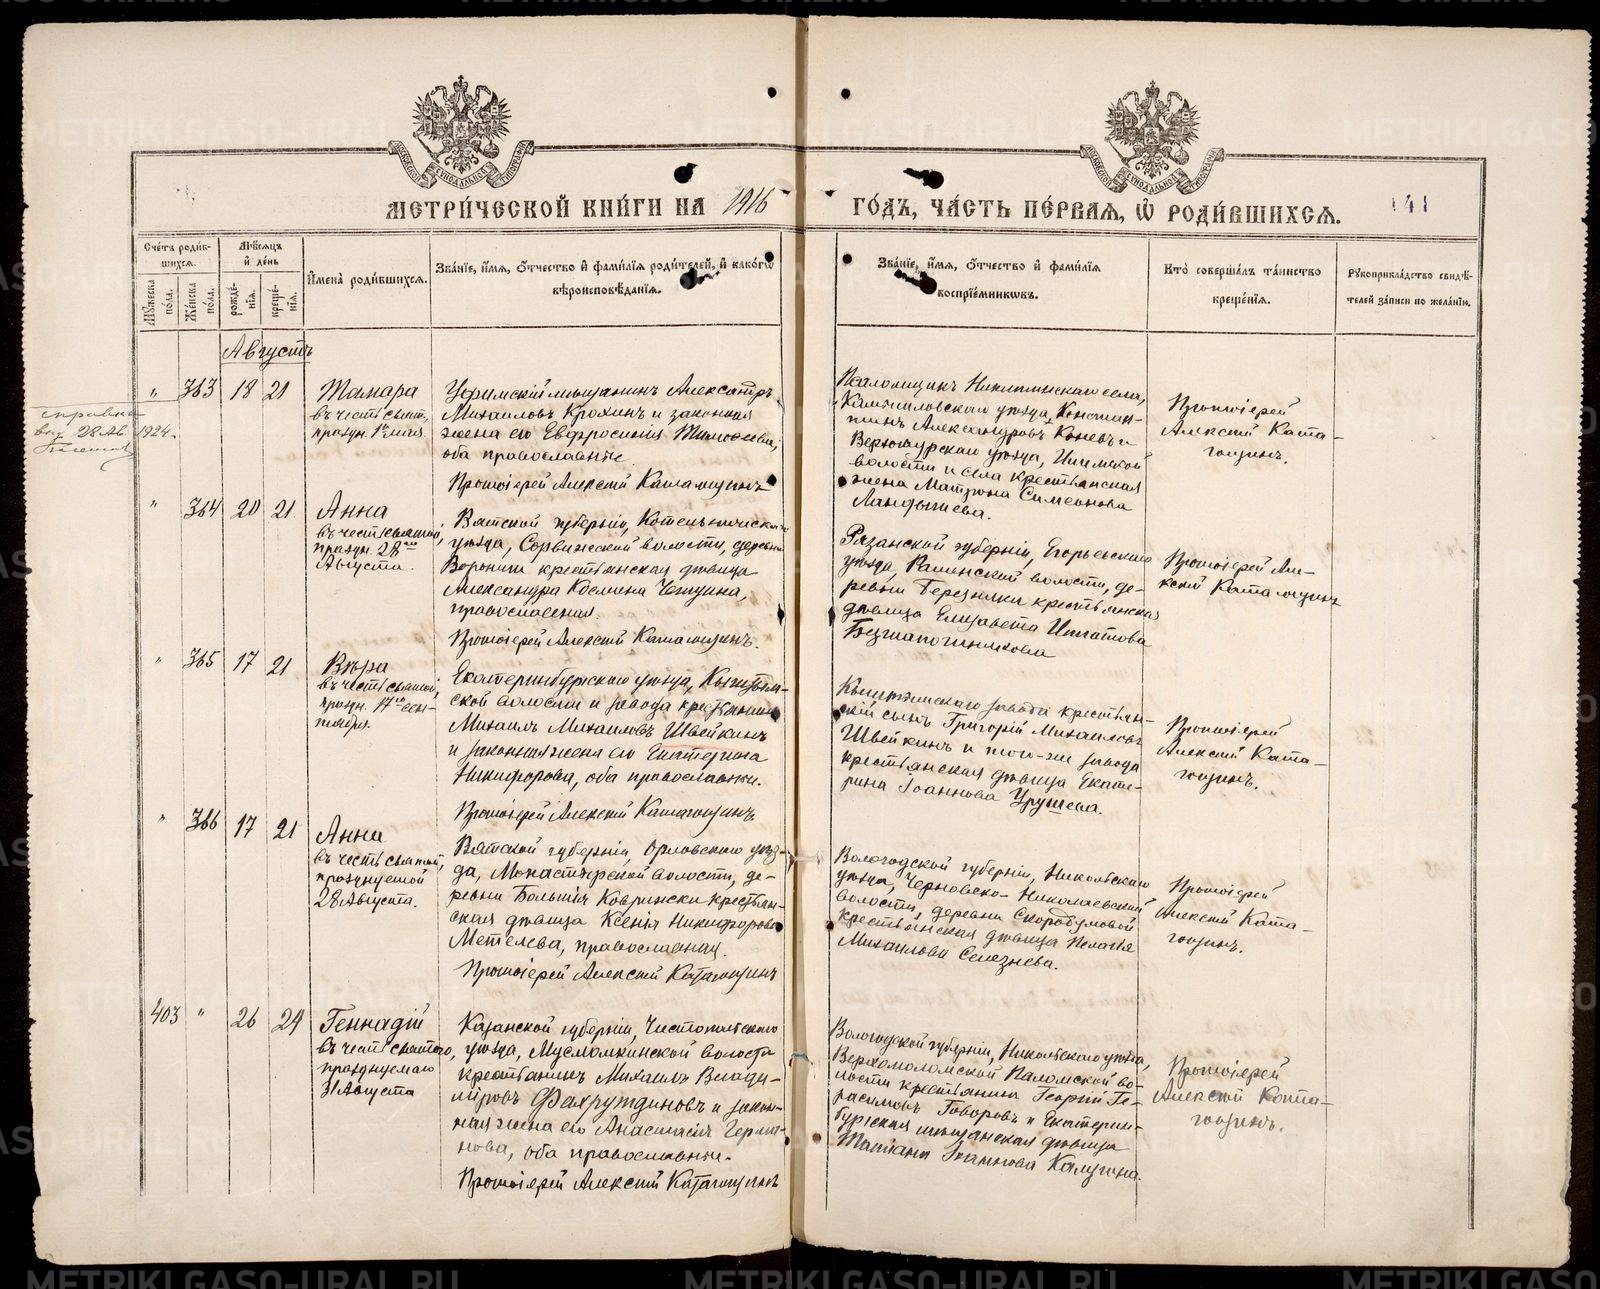 METRIKI.GASO-URAL.RU
МОСКОВСКОЙ СѴНОДАЛЬНОЙ ТИПОГРАФІИ
МОСКОВСКОЙ СѴНОДАЛЬНОЙ ТИПОГРАФІИ
МЕТРИ́ЧЕСКОЙ КНИ́ГИ НА 1916
ГО́ДЪ, ЧА́СТЬ ПЕ́РВАЯ, Ѡ РОДИ́ВШИХСЯ.
141
Сче́тъ роди́вшихся.
Му́жеска по́ла.
Же́нска по́ла.
Мѣ́сяцъ и де́нь
рожде́нія.
креще́нія.
И́мена роди́вшихся.
Зва́ніе, и́мя, о́тчество и фами́лія роди́телей, и како́гѡ
вѣроисповѣ́данія.
Зва́ніе, и́мя, о́тчество и фами́лія
воспріе́мниковъ.
Кто̀ соверша́лъ та́инство
креще́нія.
Рукоприкла́дство свидѣ́-
телей за́писи по жела́нію.
Августъ
справка
28 Ав. 1924.
" 363 18 21
Тамара
въ честь свят.,
праздн. 1го мая
Уфимскій мѣщанинъ Александръ
Михаиловъ Крохинъ и законная
жена его Евфросинія Тимоѳеева,
оба православные
Протоіерей Алексій Катагощинъ
Псаломщикъ Никитинскаго села,
Камышловскаго уѣзда, Констан-
тинъ Александровъ Коневъ и
Верхотурскаго уѣзда,
волости и села крестьянская
жена Матрона Симеонова
Ландышева.
Протоіерей
Алексій Ката-
гощинъ.
" 364 20 21
Анна
въ честь святой,
праздн. 28го
Августа.
Вятской губерніи, Котельническаго
уѣзда, Сорвижской волости, деревни
Воронии крестьянская дѣвица
Александра Космина Чепурина,
православная.
Протоіерей Алексій Катагощинъ.
Рязанской губерніи, Егорьевскаго
уѣзда, Раменской волости, де-
ревни Березняки крестьянская
дѣвица Елизавета Игнатова
Безшапошникова
Протоіерей Але-
ксій Катагощинъ
" 365 17 21
Вѣра
въ честь святой,
праздн. 17го сен-
тября.
Екатеринбургскаго уѣзда, Кыштым-
ской волости и завода крестьянинъ
Михаилъ Михаиловъ Швейкинъ
и законная жена его Екатерина
Никифорова, оба православные.
Протоіерей Алексій Катагощинъ
Кыштымскаго завода крестьян-
скій сынъ Григорій Михаиловъ
Швейкинъ и того-же завода
крестьянская дѣвица Екате-
рина Іоаннова Урушева.
Протоіерей
Алексій Ката-
гощинъ.
" 366 17 21
Анна
въ честь святой,
празднуемой
28 Августа.
Вятской губерніи, Орловскаго уѣз-
да, Монастырской волости, де-
ревни Большія Коврински крестьян-
ская дѣвица Ксенія Никифорова
Метелева, православная.
Протоіерей Алексій Катагощинъ
Вологодской губерніи, Никольскаго
уѣзда, Черновско-Николаевской
волости, деревни Скородумовой
крестьянская дѣвица Пелагія
Михаилова Селезнева.
Протоіерей
Алексій Ката-
гощинъ.
403 " 26 29
Геннадій
въ честь святого,
празднуемаго
31 Августа
Казанской губерніи, Чистопольскаго
уѣзда, Мусломкинской волости
крестьянинъ Михаилъ Влади-
міровъ Фахрутдиновъ и закон-
ная жена его Анастасія Герма-
нова, оба православные.
Протоіерей Алексій Катагощинъ
Вологодской губерніи, Никольскаго уѣзда,
Верхомоломской Паломской во-
лости крестьянинъ Георгій Ге-
расимовъ Говоровъ и Екатерин-
бургская мѣщанская дѣвица
Татіана Іоаннова Калугина.
Протоіерей
Алексій Ката-
гощинъ.